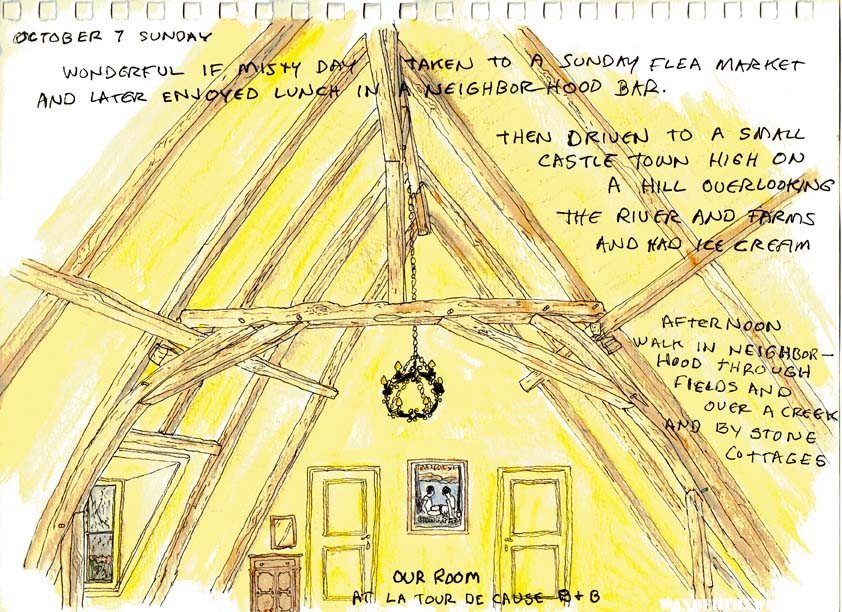 OCTOBER 7 SUNDAY
WONDERFUL IF MISTY DAY TAKEN TO A SUNDAY FLEA MARKET
AND LATER ENJOYED LUNCH IN A NEIGHBORHOOD BAR.
THEN DRIVEN TO A SMALL
CASTLE TOWN HIGH ON
A HILL OVERLOOKING
THE RIVER AND FARMS
AND HAD ICE CREAM
AFTERNOON
WALK IN NEIGHBOR-
HOOD THROUGH
FIELDS AND
OVER A CREEK
AND BY STONE
COTTAGES
OUR ROOM
AT LA TOUR DE CAUSE B+B